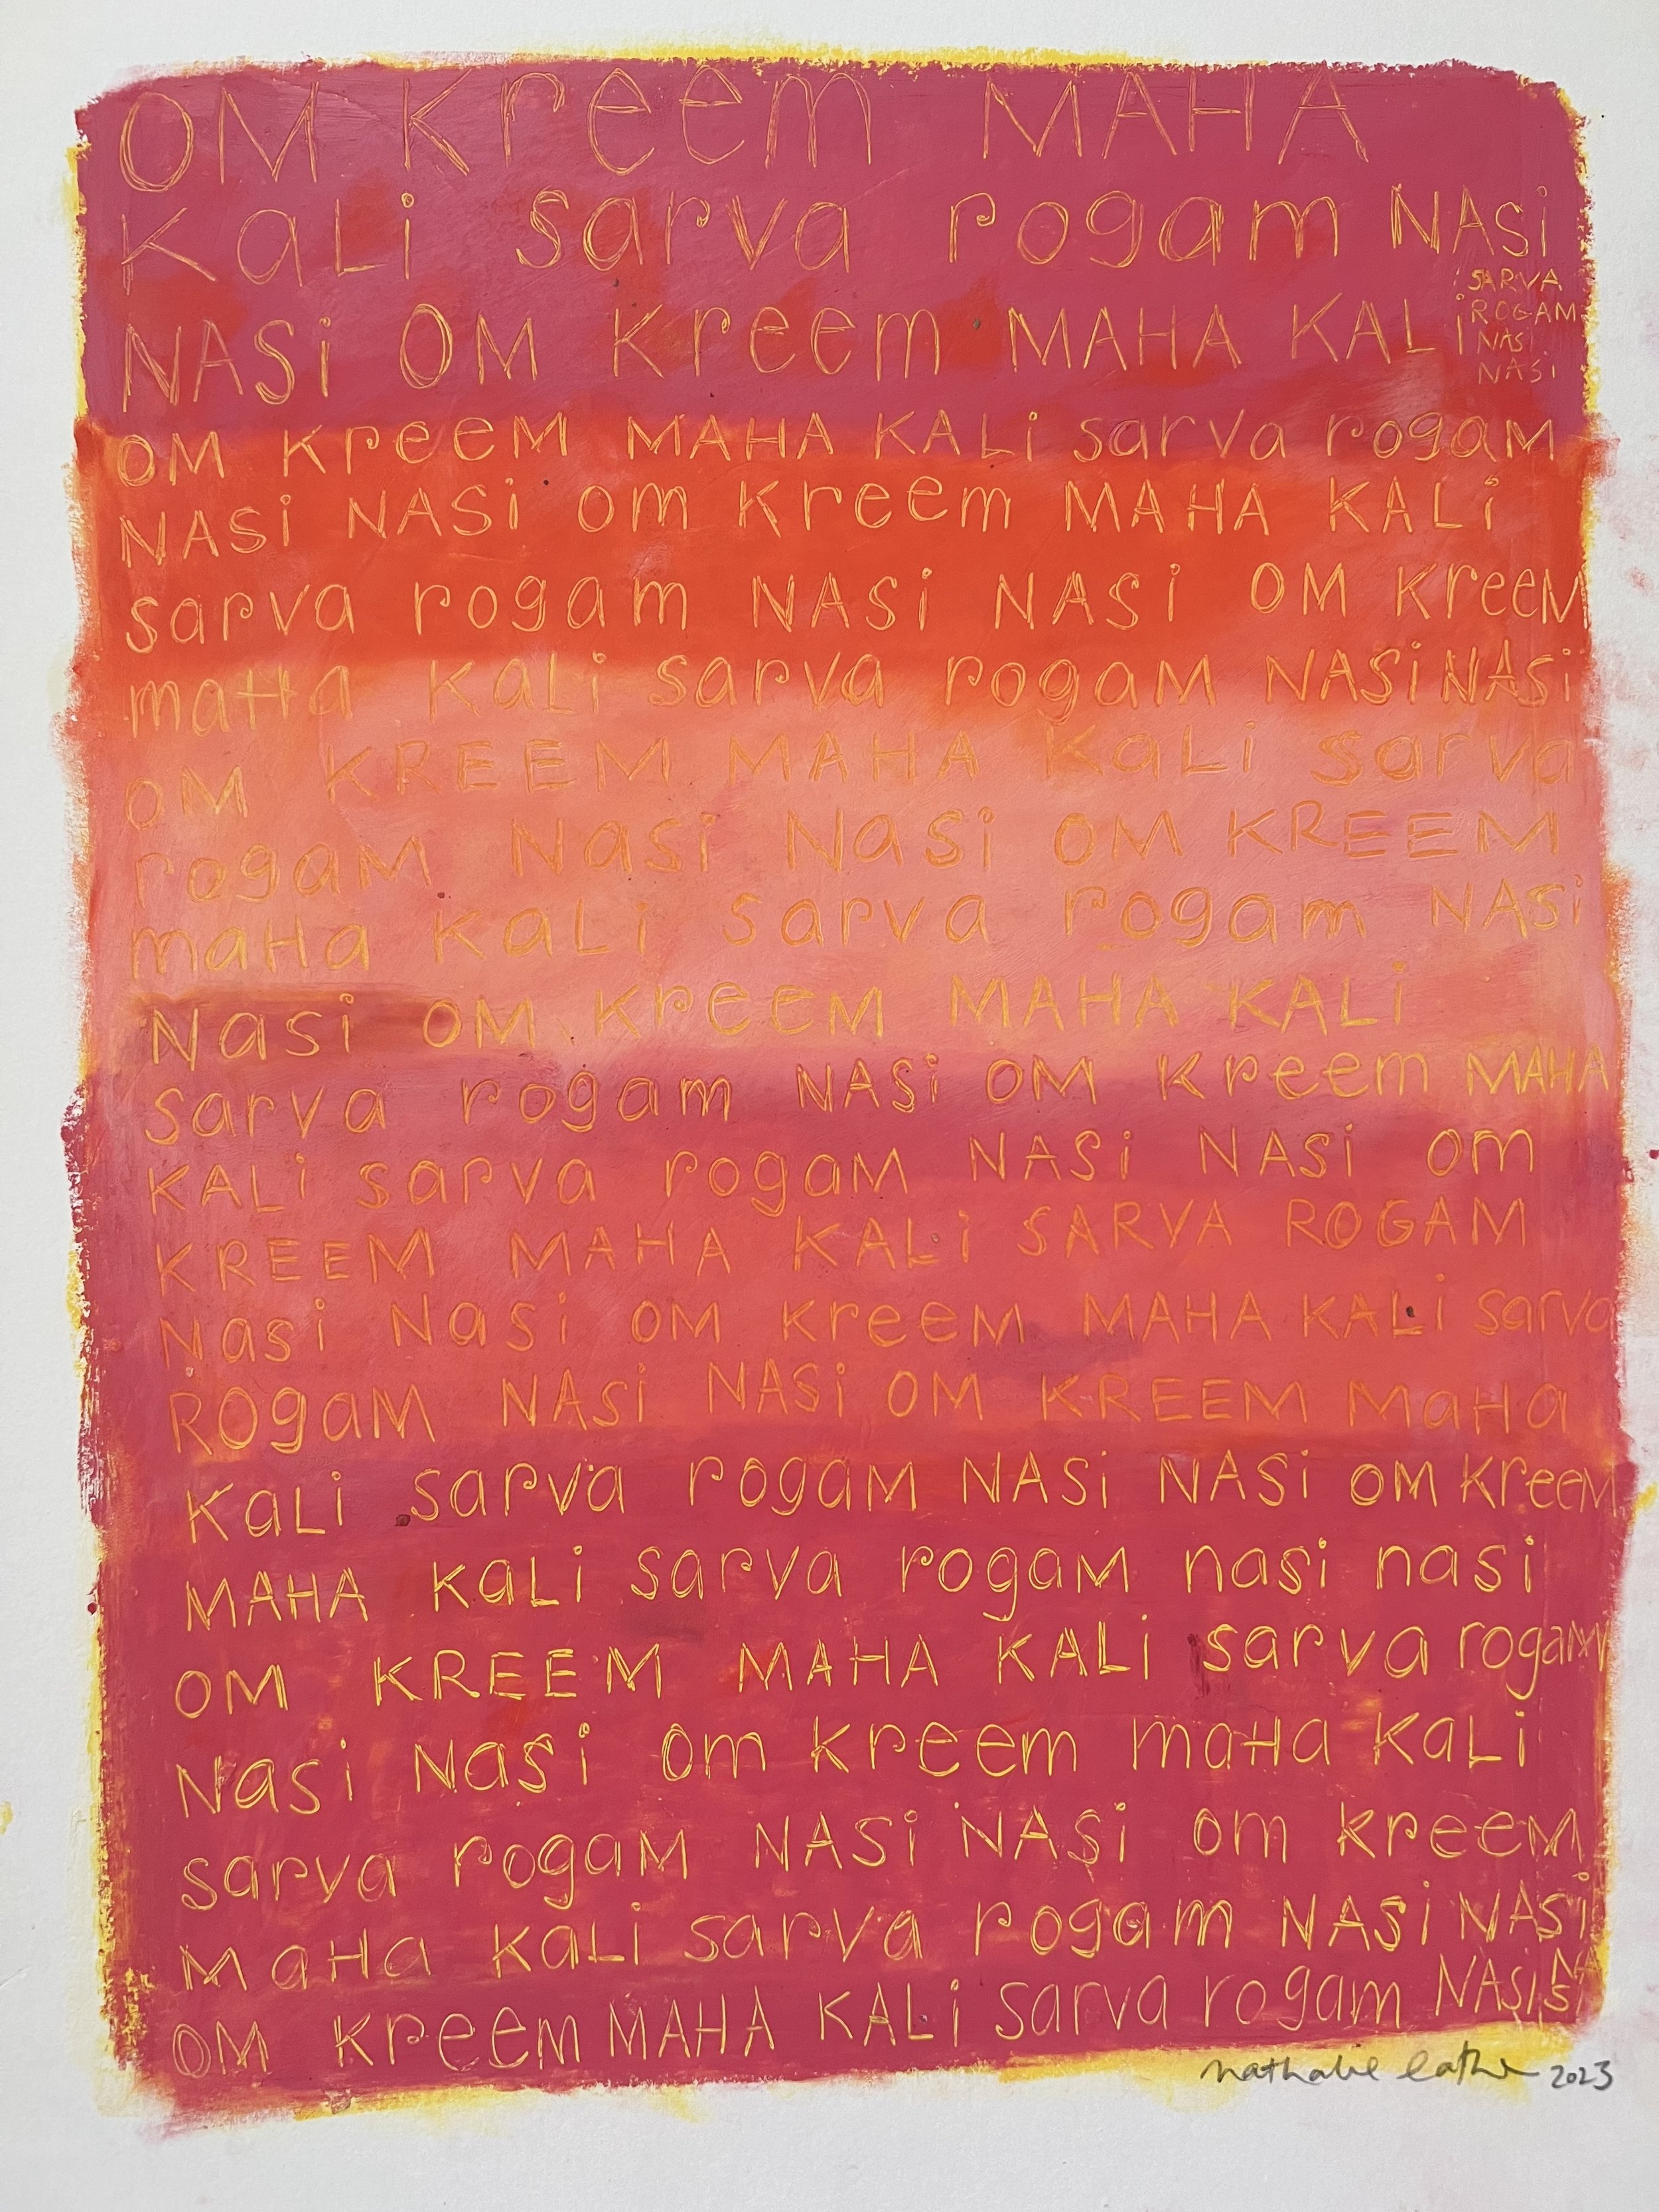 OM Kreem MAHA
Kali sarva rogam NASi
NASi OM Kreem MAHA KALi
SARVA
ROGAM
NASI
NASi
OM KreeM MAHA KALi sarva rogaM
NASi NASi om Kreem MAHA KALi
sarva rogam NASi NASi OM KreeM
maHa KaLi sarva rogaM NASi NASi
OM KREEM MAHA KaLi sarva
rogaM Nasi Nasi OM KREEM
maHa KaLi sarva rogam NASi
Nasi OM KreeM MAHA KALi
sarva rogam NASi OM Kreem MAHA
KALi sarva rogaM NASi NASi om
KREEM MAHA KALi SARVA ROGAM
Nasi Nasi OM kreeM MAHA KALi sarva
ROgaM NASi NASi OM KREEM MaHa
KaLi sarva rogaM NASi NASi OM KreeM
MAHA KaLi sarva rogaM nasi nasi
OM KREEM MAHA KALi sarva rogam
Nasi Nasi om kreem maHa KaLi
sarva rogaM NASi NASi om kreeM
MaHa KaLi sarva rogam NASi NASi
OM kreem MAHA KALi sarva rogam NASi NA
Si
2023